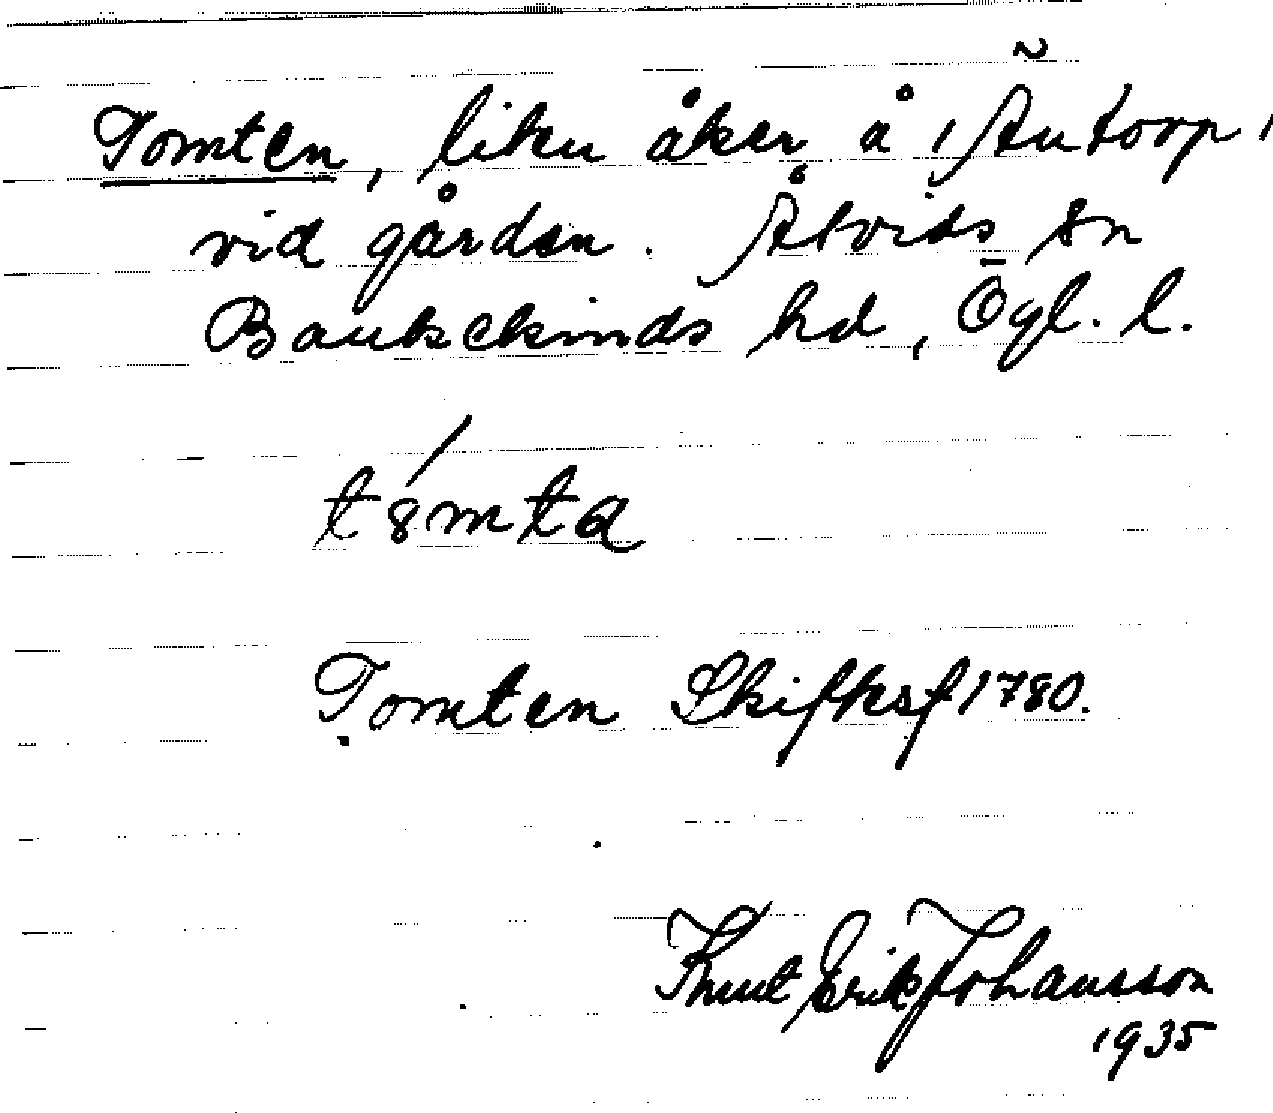 Tomten, liten åker å 1 Åntorp 1
vid gården. Åtvids sn
Bankekinds hd, Ögl. l.
t8mta
Tomten Skifksf 1780.
Knut Erik Johansson
1935